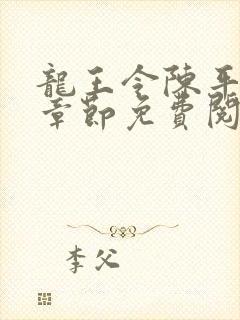 龍王令陳平
章節免費閱
李父